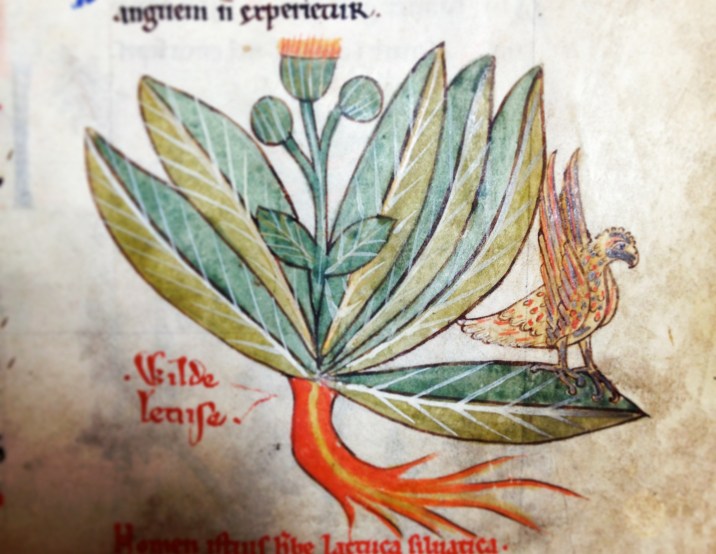 anguem n̄ experietur.
. Wilde
letuse .
Nomen istius h̄be lactuca siluatica .